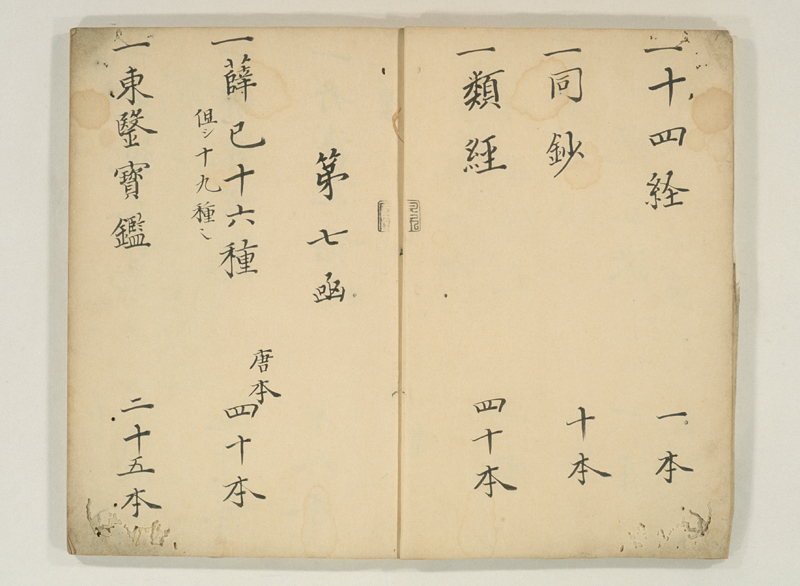 一十四経 一本
一同鈔 十本
一類経 四十本
第七函
一薛己十六種 唐本 四十本
但シ十九種ミ
一東醫寶鑑 二十五本